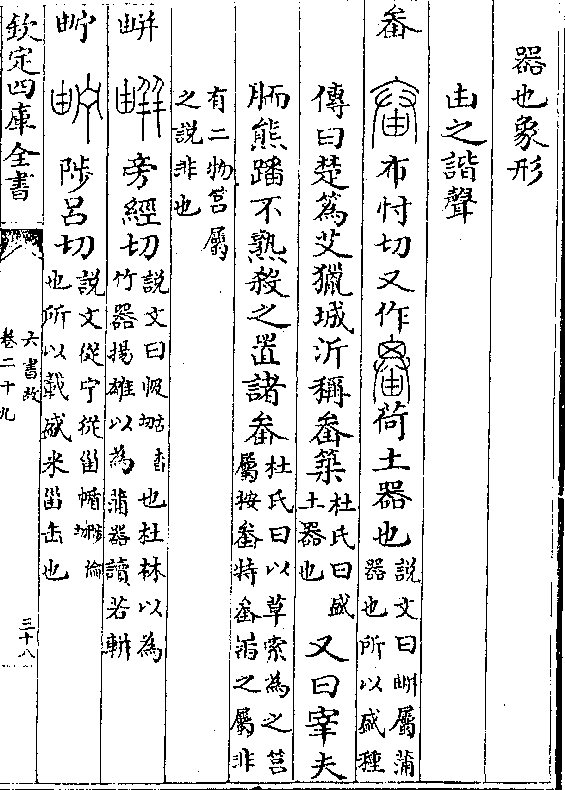 器也象形
由之諧聲
畚布忖切又作荷土器也說文曰屬蒲
器也所以盛種
傳曰楚爲艾獵城沂稱畚築杜氏曰盛
土器也又曰宰夫
胹熊蹯不熟殺之置諸畚杜氏曰以草索為之筥
屬按畚特畚之屬非
有二物筥屬
之說非也
旁經切說文曰畚也杜林以為
竹器揚雄以為蒲器讀若軿
陟呂切說文從宁從甾㡒陟倫切
也所以載盛米甾缶也
欽定四庫全書
六書故
卷二十九
三十八